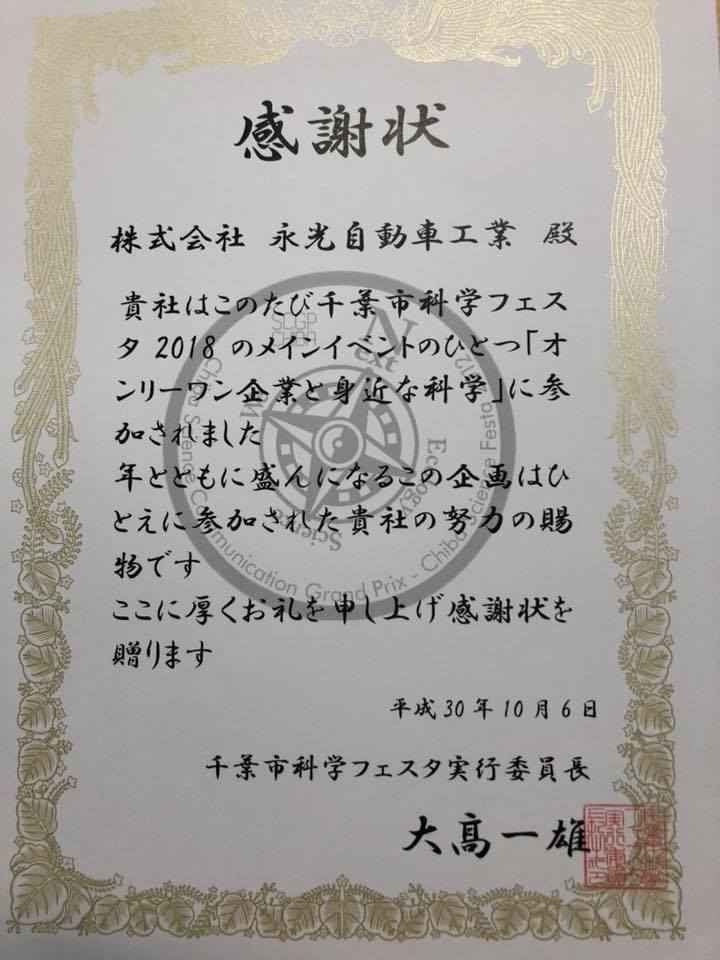 感謝状
株式会社 永光自動車工業 殿
貴社はこのたび千葉市科学フェス
タ 2018 のメインイベントのひとつ「オ
ンリーワン企業と身近な科学」に参
加されました
年とともに盛んになるこの企画はひ
とえに参加された貴社の努力の賜
物です
ここに厚くお礼を申し上げ感謝状を
贈ります
平成 30 年 10 月 6 日
千葉市科学フェスタ実行委員長
大髙一雄
Chiba Science Communication Grand Prix - Chiba Science Festa